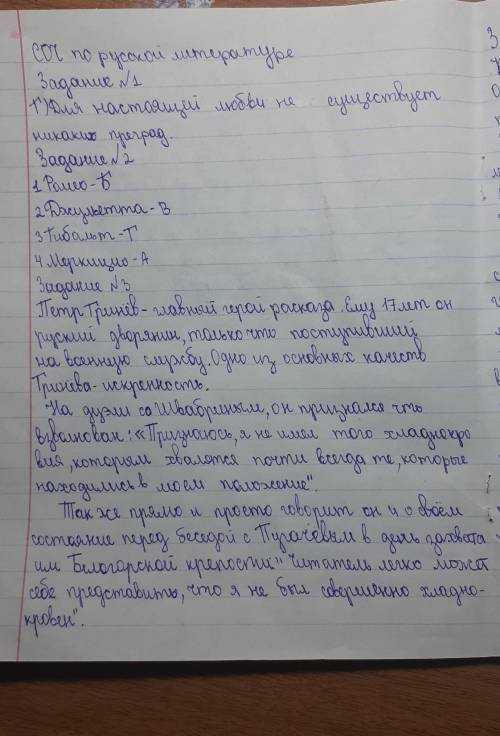 СОЧ по русской литературе
Задание №1
Г) Для настоящей любви не существует
никаких преград.
Задание №2
1 Ромео - Б
2 Джульетта - В
3 Тибальт - Г
4. Меркуцио - А
Задание №3
Петр Гринёв - главный герой расказа. Ему 17 лет он
руский дворянин, только что поступивший
на военную службу. Одно из основных качеств
Гринёва - искренность.
На дуэли со Швабриным, он признался что
взволнован: «Признаюсь, я не имел того хладнокро
вия, которым хвалятся почти всегда те, которые
находились в моем положение".
Так же прямо и просто говорит он и о своём
состояние перед беседой с Пугачёвым в день захвата
им Белогорской крепости: "Читатель легко может
себе представить, что я не был совершенно хладно-
кровен".